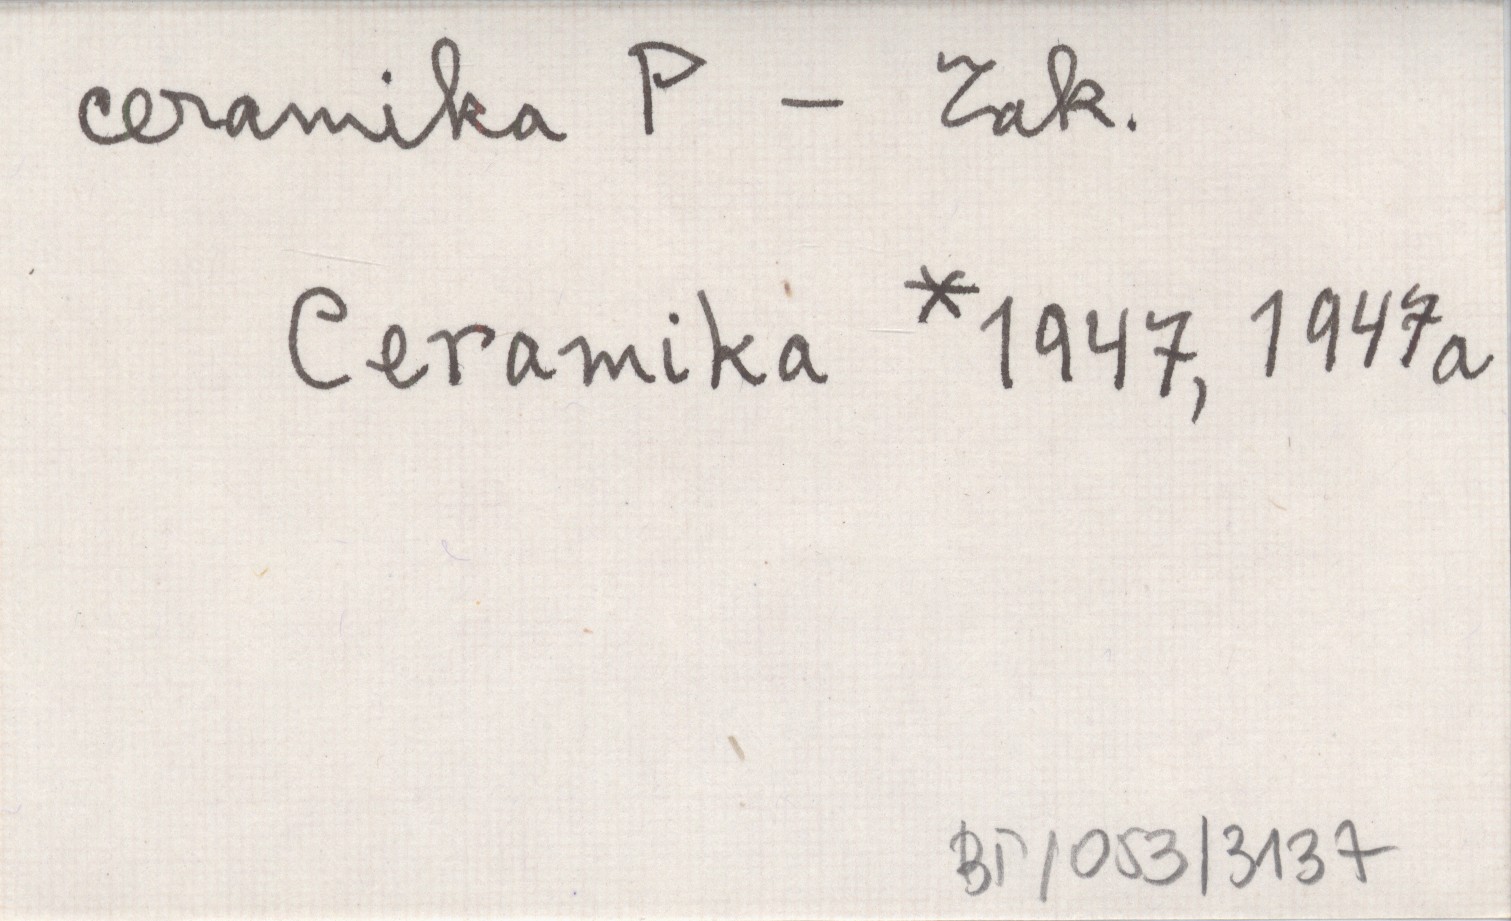 ceramika P - Zak.
Ceramika *1947, 1947a
BF/053/3137